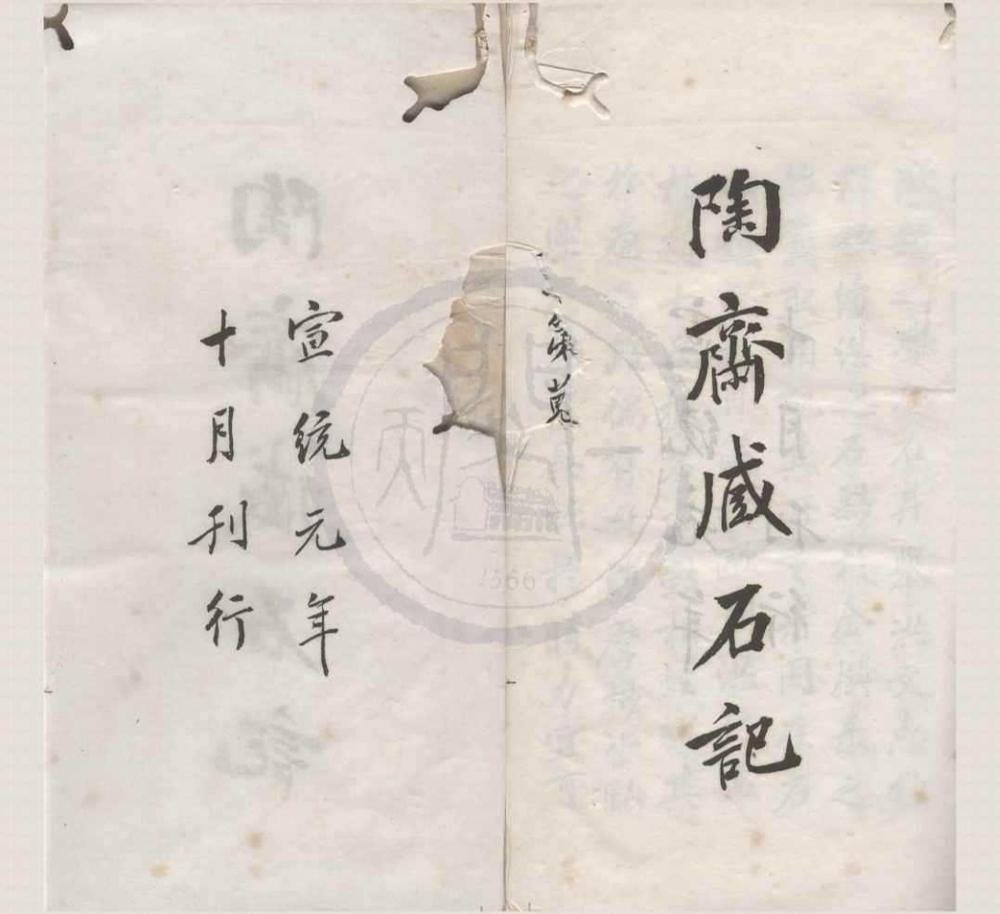 陶齋臧石記
宣統元年
十月刊行
1566